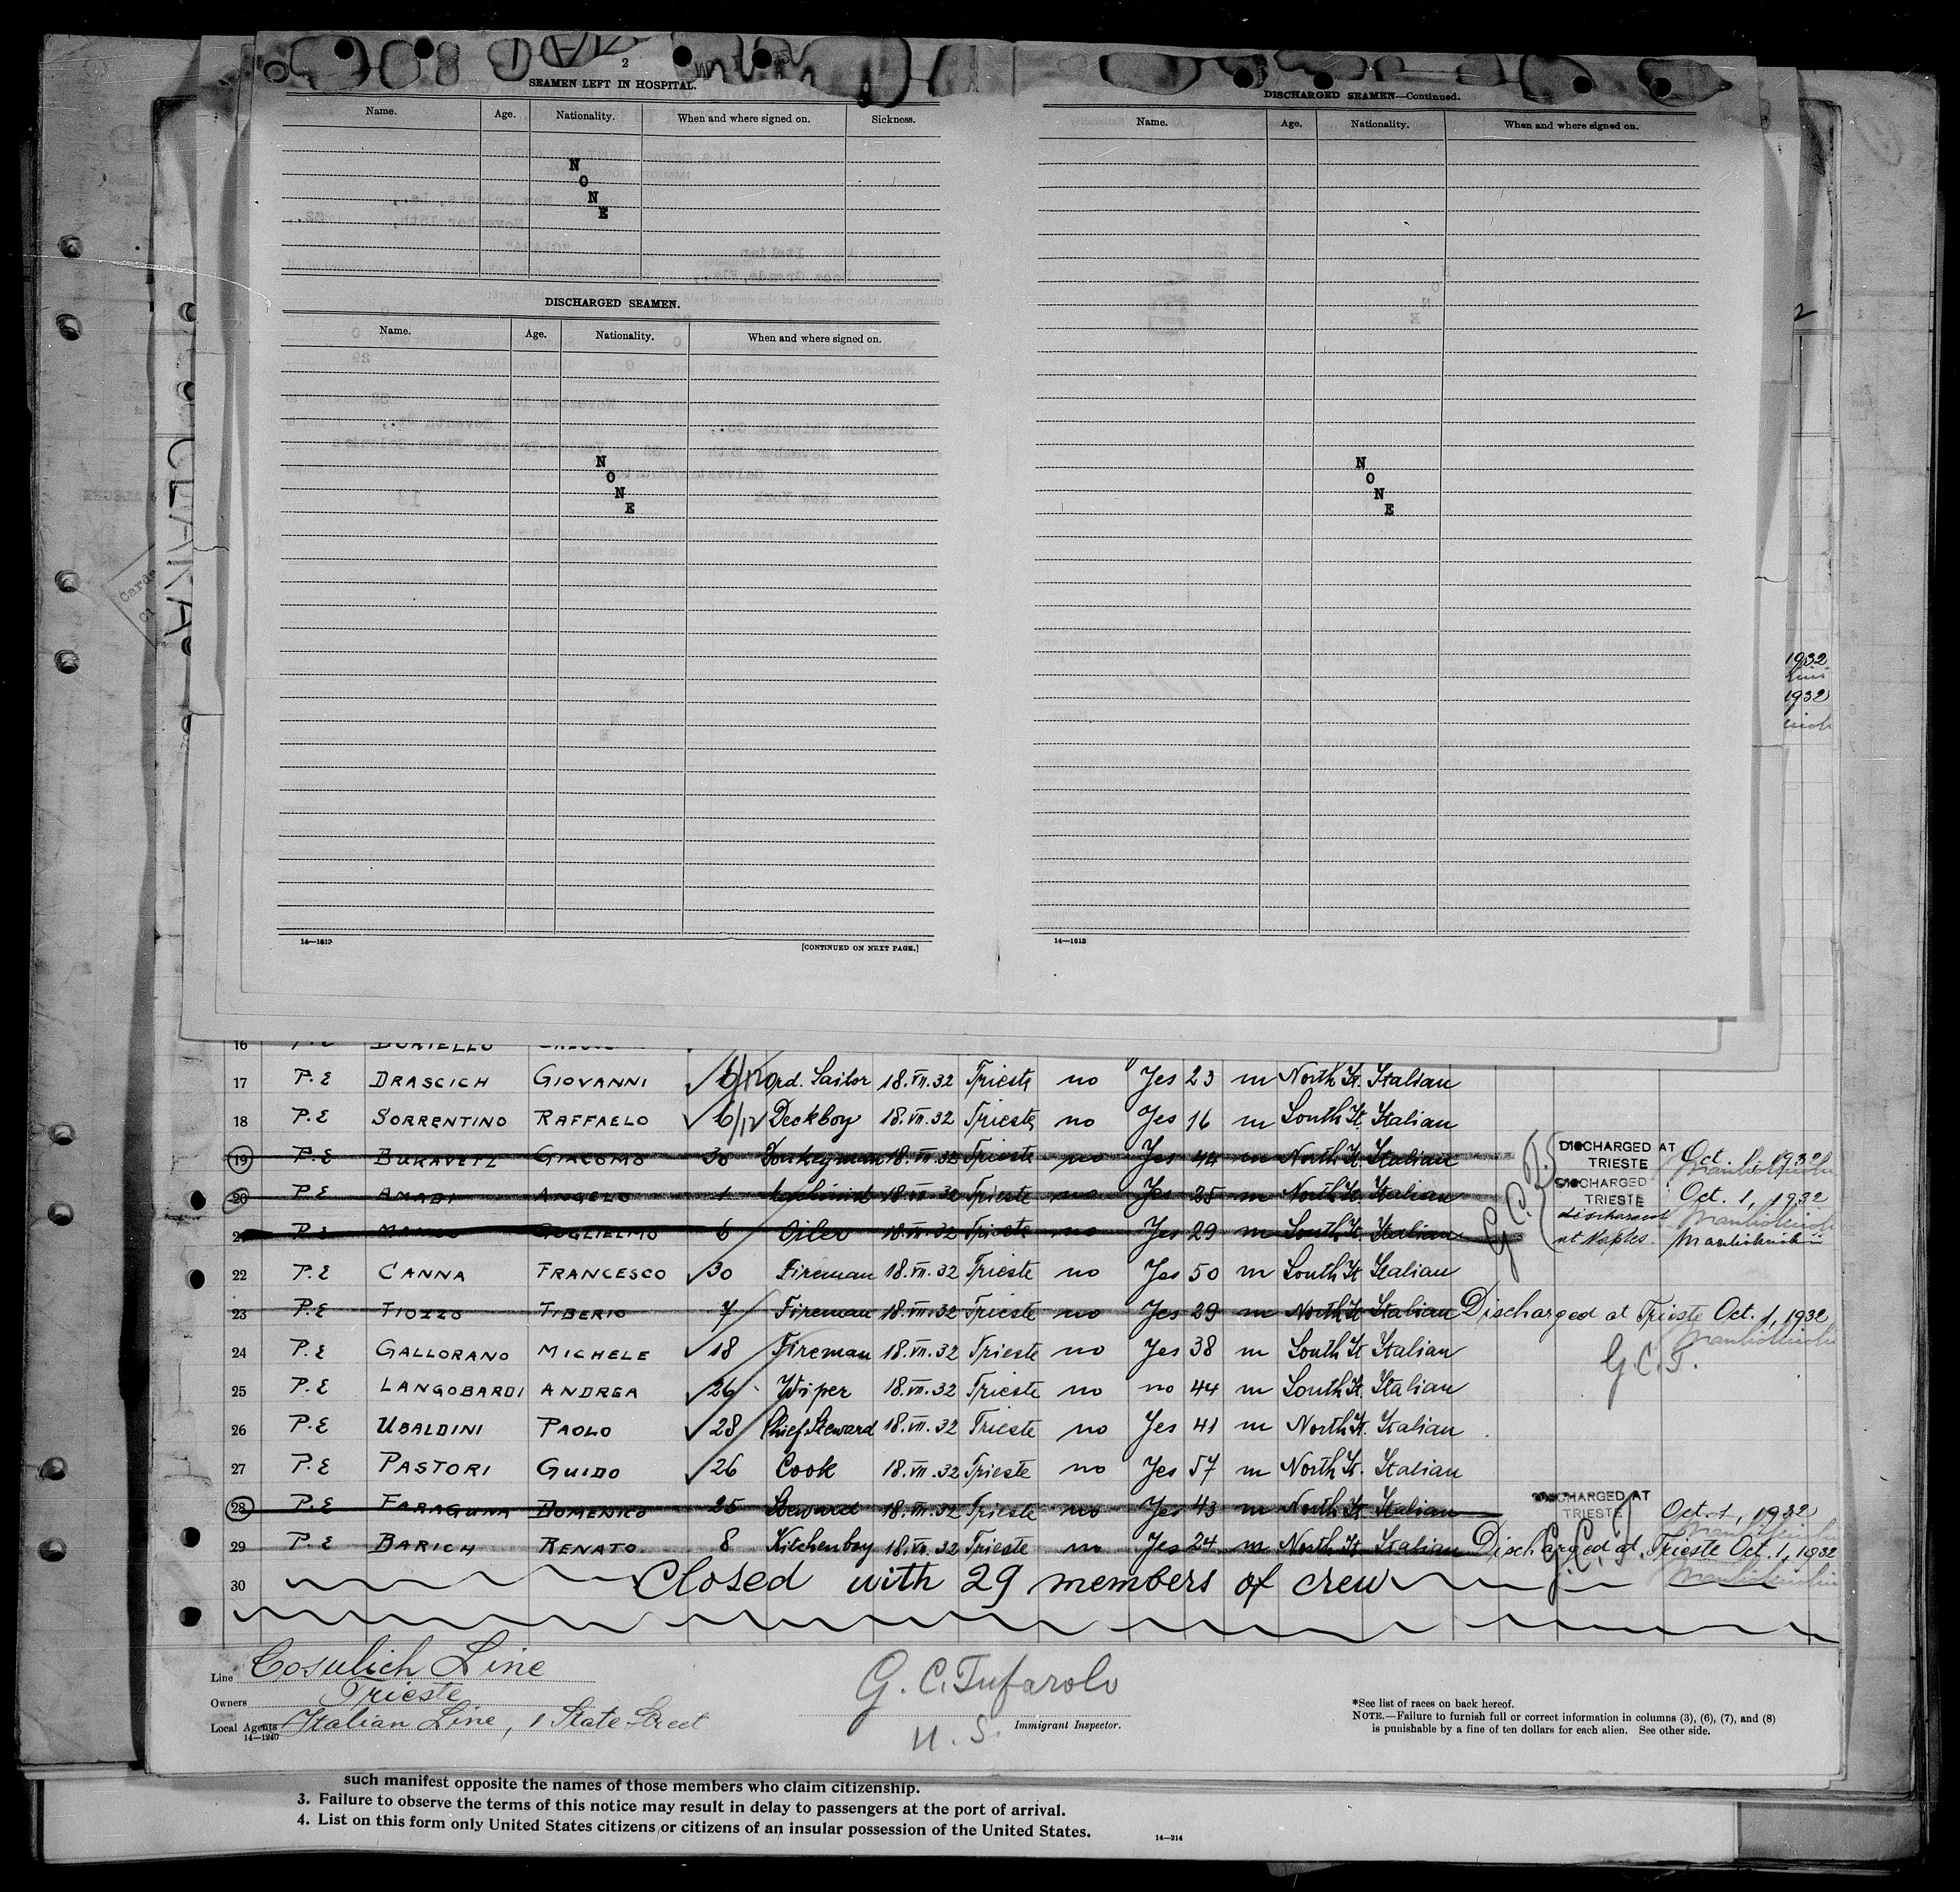 2
SEAMEN LEFT IN HOSPITAL.
Name. Age. Nationality. When and where signed on. Sickness.
N
O
N
E
DISCHARGED SEAMEN.
Name. Age. Nationality. When and where signed on.
N
O
N
E
14—1613 [CONTINUED ON NEXT PAGE.]
DISCHARGED SEAMEN—Continued.
Name. Age. Nationality. When and where signed on.
N
O
N
E
14—1613
CLARA
Cards
1932
1932
16 P.E
17 P.E DRASCICH GIOVANNI 6/12 Ord. Sailor 18.VII.32 Trieste no Yes 23 m North It. Italian
18 P.E SORRENTINO RAFFAELO 6/12 Deckboy 18.VII.32 Trieste no Yes 16 m South It. Italian
19 P.E GIACOMO 30 Donkeyman 18.VII.32 Trieste no Yes 44 m North It. Italian DISCHARGED AT TRIESTE Oct. 1, 1932
20 P.E AMADI ANGELO 1 18.VII.32 Trieste no Yes 25 m North It. Italian DISCHARGED TRIESTE Oct. 1, 1932
P.E GUGLIELMO 6 Oiler 18.VII.32 Trieste no Yes 29 m South It. Italian discharged at Naples.
22 P.E CANNA FRANCESCO 30 Fireman 18.VII.32 Trieste no Yes 50 m South It Italian
23 P.E TIOZZO TIBERIO 7 Fireman 18.VII.32 Trieste no Yes 29 m North It Italian Discharged at Trieste Oct. 1, 1932
24 P.E GALLORANO MICHELE 18 Fireman 18.VII.32 Trieste no Yes 38 m South It Italian G.C.T.
25 P.E LANGOBARDI ANDREA 26 Wiper 18.VII.32 Trieste no no 44 m South It. Italian
26 P.E UBALDINI PAOLO 28 Chief Steward 18.VII.32 Trieste no Yes 41 m North It. Italian
27 P.E PASTORI GUIDO 26 Cook 18.VII.32 Trieste no Yes 57 m North It. Italian
28 P.E FARAGUNA DOMENICO 25 Steward 18.VII.32 Trieste no Yes 43 m North It. Italian DISCHARGED AT TRIESTE Oct. 1, 1932
29 P.E BARICH RENATO 8 Kitchenboy 18.VII.32 Trieste no Yes 24 m North It Italian Discharged at Trieste Oct. 1, 1932
30 Closed with 29 members of crew G.C.T.
Line Cosulich Line
Owners Trieste
Local Agents Italian Line, 1 State Street
14—1240
G. C. Tufarolo
U. S. Immigrant Inspector.
*See list of races on back hereof.
NOTE.—Failure to furnish full or correct information in columns (3), (6), (7), and (8)
is punishable by a fine of ten dollars for each alien. See other side.
such manifest opposite the names of those members who claim citizenship.
3. Failure to observe the terms of this notice may result in delay to passengers at the port of arrival.
4. List on this form only United States citizens or citizens of an insular possession of the United States.
14—214